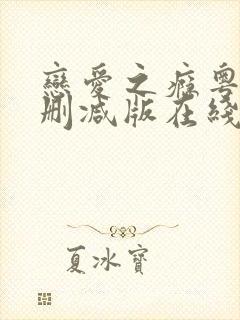 戀愛之癮粵
刪減版在綫
夏冰寶